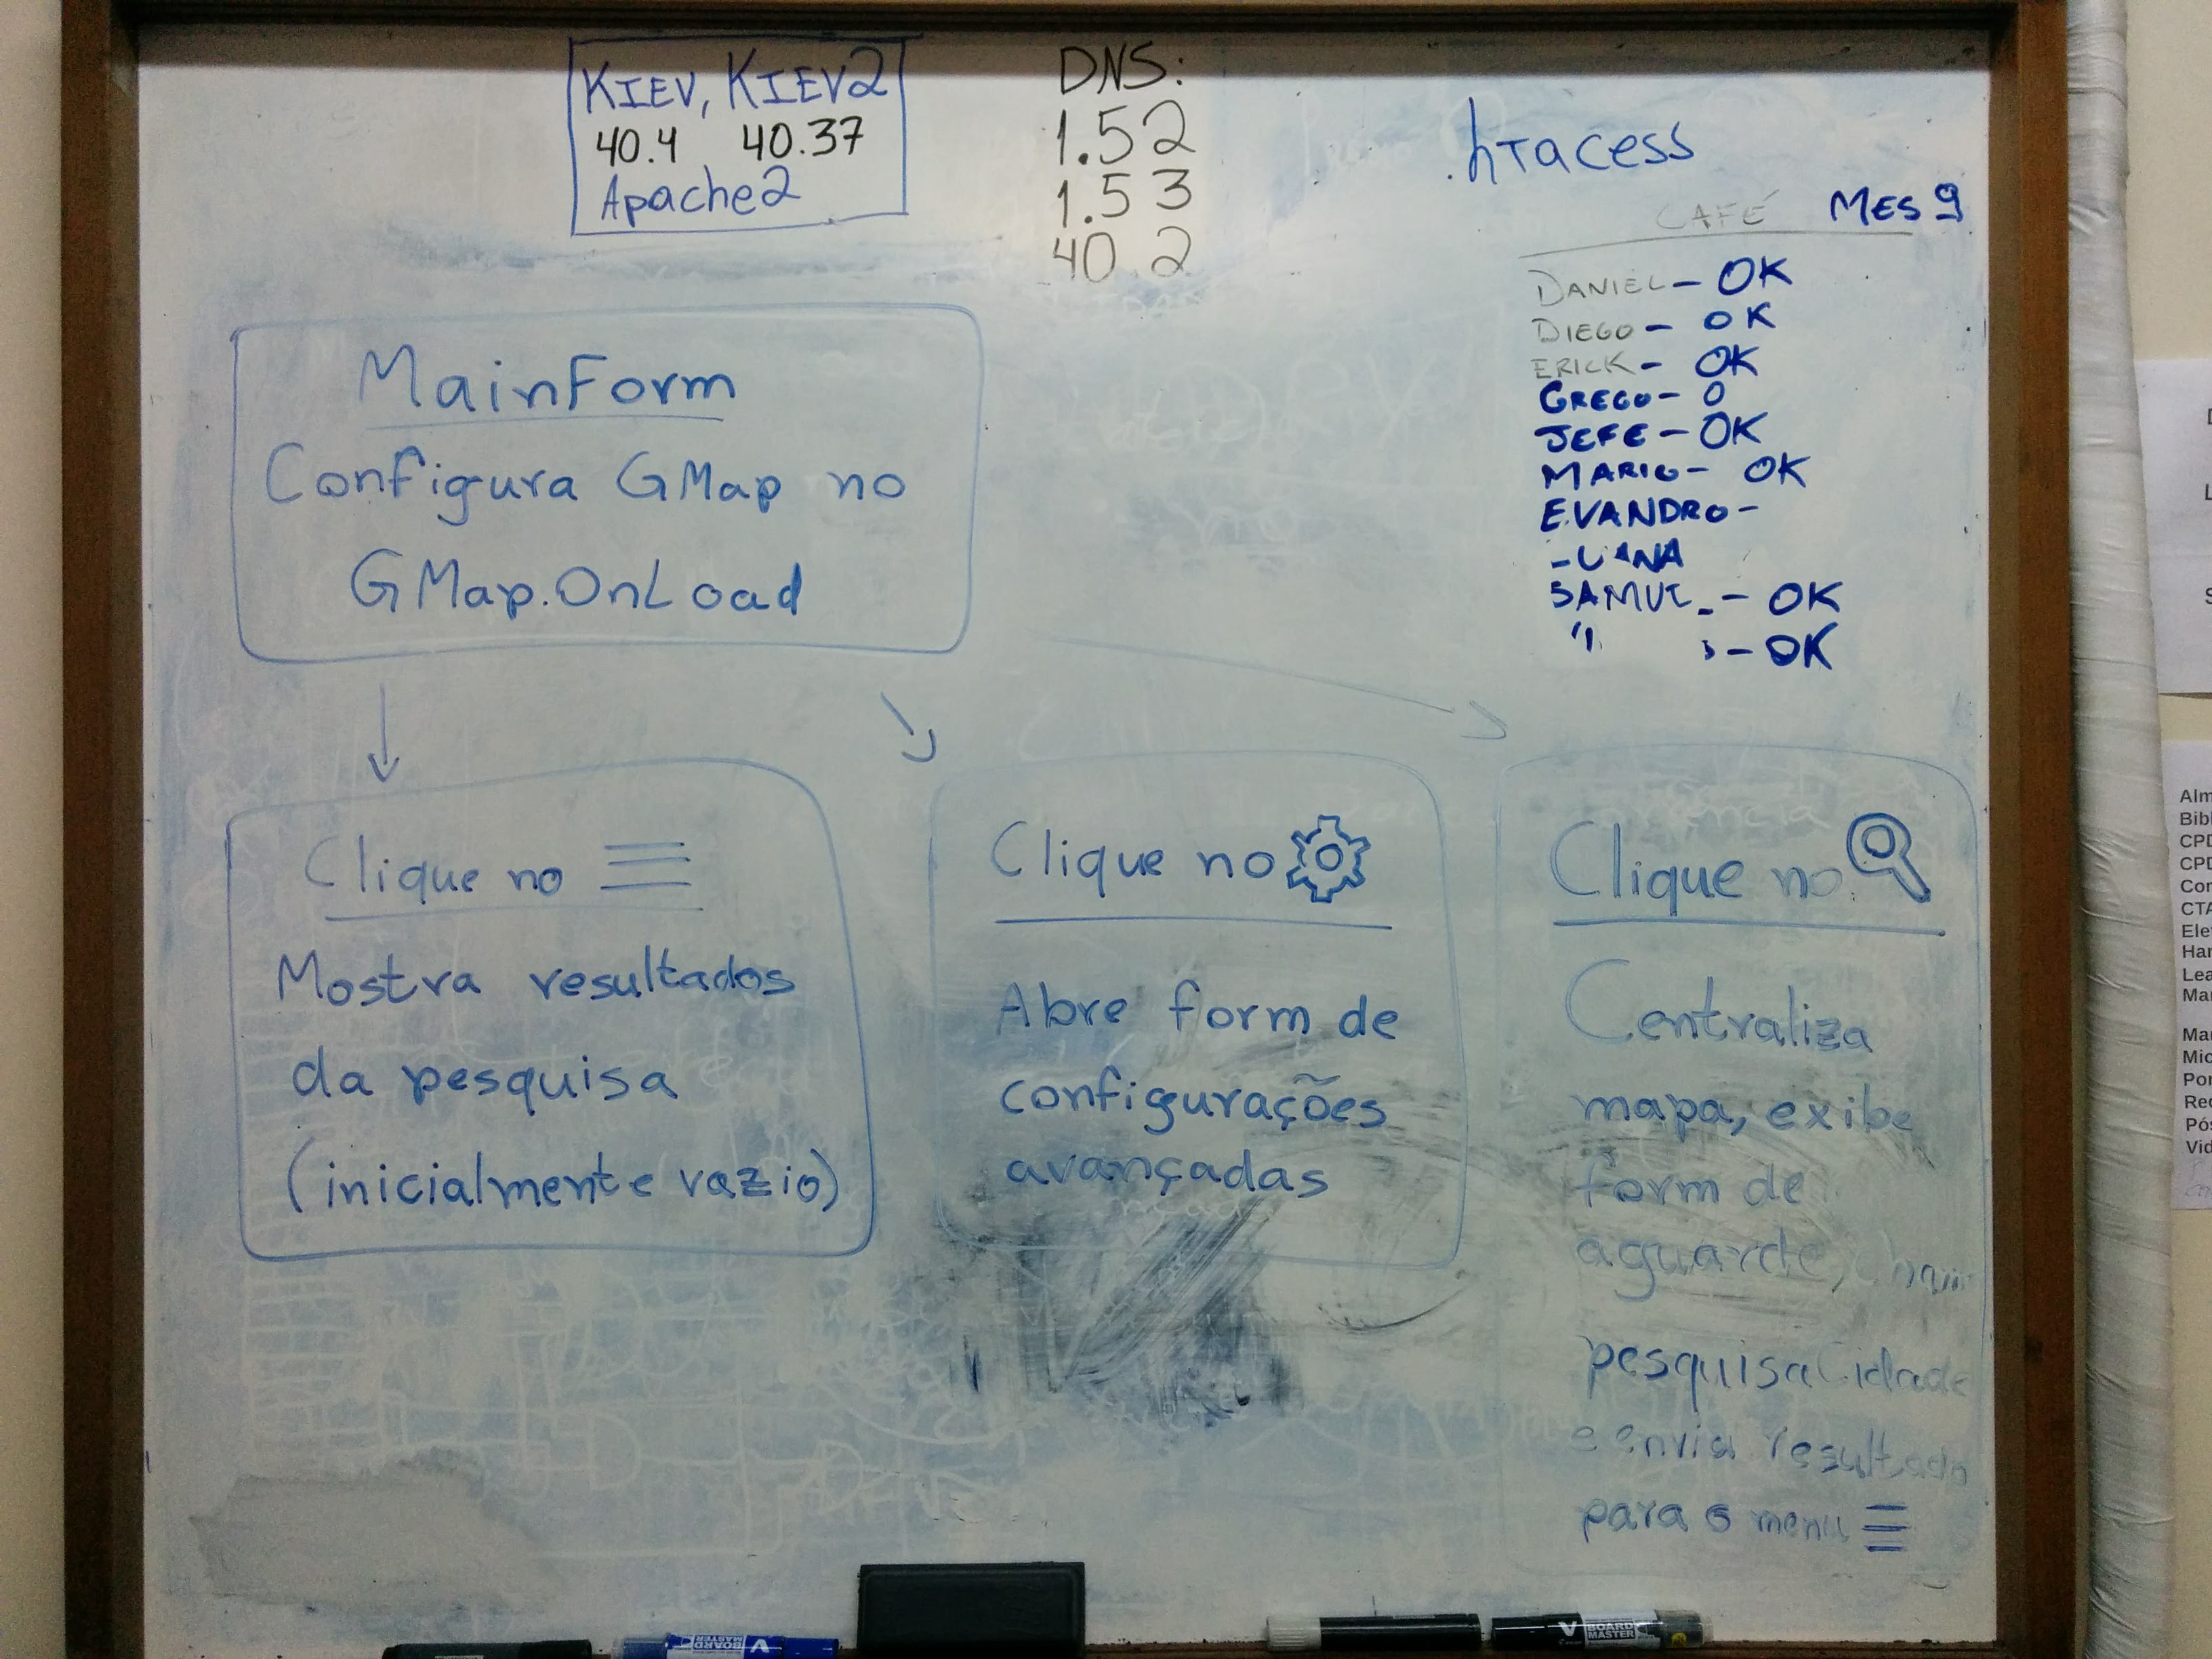 KIEV, KIEV2
40.4 40.37
Apache2
DNS:
1.52
1.53
40.2
.htacess
CAFÉ MES 9
DANIEL - OK
DIEGO - OK
ERICK - OK
GREGO - O
JEFE - OK
MARIO - OK
EVANDRO -
SAMUE - OK
- OK
MainForm
Configura GMap no
GMap.OnLoad
Clique no ☰
Mostra resultados
da pesquisa
(inicialmente vazio)
Clique no
Abre form de
configurações
avançadas
Clique no
Centraliza
mapa, exibe
form de
aguarde,
pesquisaCidade
e envia resultado
para o menu ☰
Alm
Bibl
CPD
CPD
Con
CTA
Ele
Har
Lea
Mar
Mar
Mic
Por
Red
Pós
Vid
BOARD
MASTER
V BOARD
MASTER